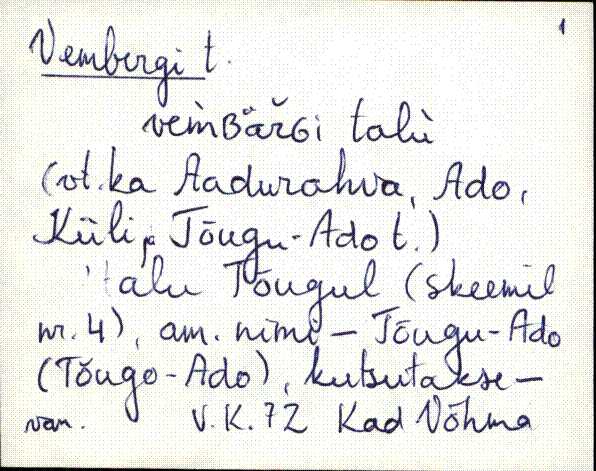 1
Vembergi t.
vem̀ʙäřɢi talù
(vt. ka Aadurahva, Ado,
Küli, Tõugu-Ado t.)
talu Tõugul (skeemil
nr. 4), am. nimi - Tõugu-Ado
(Tõugo-Ado), kutsutakse -
van. V.K. 72 Kad Võhma